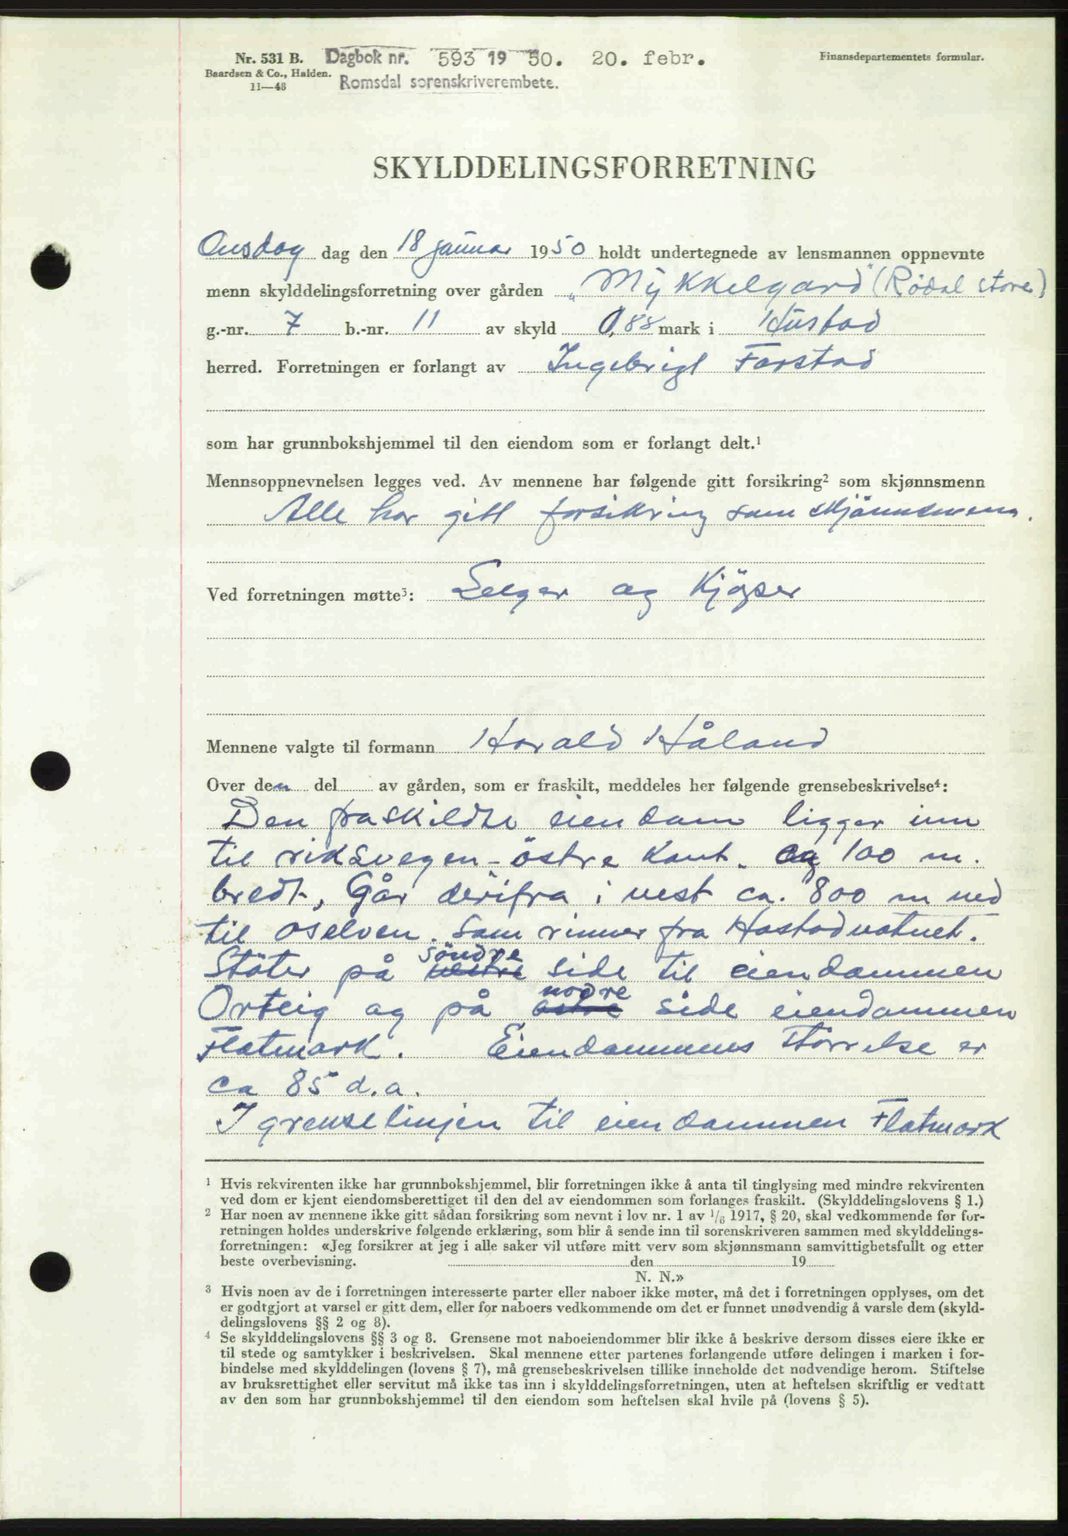 Nr. 531 B. Dagbok nr. 593 19 50. 20. febr. Finansdepartementets formular.
Baardsen & Co., Halden.
11—48 Romsdal sorenskriverembete.
SKYLDDELINGSFORRETNING
Onsdag dag den 18 januar 1950 holdt undertegnede av lensmannen oppnevnte
menn skylddelingsforretning over gården „Mykkelgard" (Rödal store)
g.-nr. 7 b.-nr. 11 av skyld 0,88 mark i Hustad
herred. Forretningen er forlangt av Ingebrigt Farstad
som har grunnbokshjemmel til den eiendom som er forlangt delt.¹
Mennsoppnevnelsen legges ved. Av mennene har følgende gitt forsikring² som skjønnsmenn
Alle har gitt forsikring som skjönnsmenn.
Ved forretningen møtte³: Selger og Kjöper
Mennene valgte til formann Harald Håland
Over den del av gården, som er fraskilt, meddeles her følgende grensebeskrivelse⁴:
Den fraskildte eiendom ligger inn
til riksvegen - östre kant. ca 100 m.
bredt, Går derifra i vest ca. 800 m ned
til oselven. som rinner fra Hostadvatnet.
söndre
Stöter på vestre side til eiendommen
nodre
Orteig og på östre side eiendommen
Flatmark. Eiendommens störrelse er
ca 85 d.a.
I grenselinjen til eiendommen Flatmark
¹ Hvis rekvirenten ikke har grunnbokshjemmel, blir forretningen ikke å anta til tinglysing med mindre rekvirenten
ved dom er kjent eiendomsberettiget til den del av eiendommen som forlanges fraskilt. (Skylddelingslovens § 1.)
² Har noen av mennene ikke gitt sådan forsikring som nevnt i lov nr. 1 av ¹/₆ 1917, § 20, skal vedkommende før for-
retningen holdes underskrive følgende erklæring, som blir å sende inn til sorenskriveren sammen med skylddelings-
forretningen: «Jeg forsikrer at jeg i alle saker vil utføre mitt verv som skjønnsmann samvittighetsfullt og etter
beste overbevisning. den 19
N. N.»
³ Hvis noen av de i forretningen interesserte parter eller naboer ikke møter, må det i forretningen opplyses, om det
er godtgjort at varsel er gitt dem, eller for naboers vedkommende om det er funnet unødvendig å varsle dem (skyld-
delingslovens §§ 2 og 8).
⁴ Se skylddelingslovens §§ 3 og 8. Grensene mot naboeiendommer blir ikke å beskrive dersom disses eiere ikke er
til stede og samtykker i beskrivelsen. Skal mennene etter partenes forlangende utføre delingen i marken i for-
bindelse med skylddelingen (lovens § 7), må grensebeskrivelsen tillike inneholde det nødvendige herom. Stiftelse
av bruksrettighet eller servitut må ikke tas inn i skylddelingsforretningen, uten at heftelsen skriftlig er vedtatt
av den som har grunnbokshjemmel til den eiendom som heftelsen skal hvile på (lovens § 5).